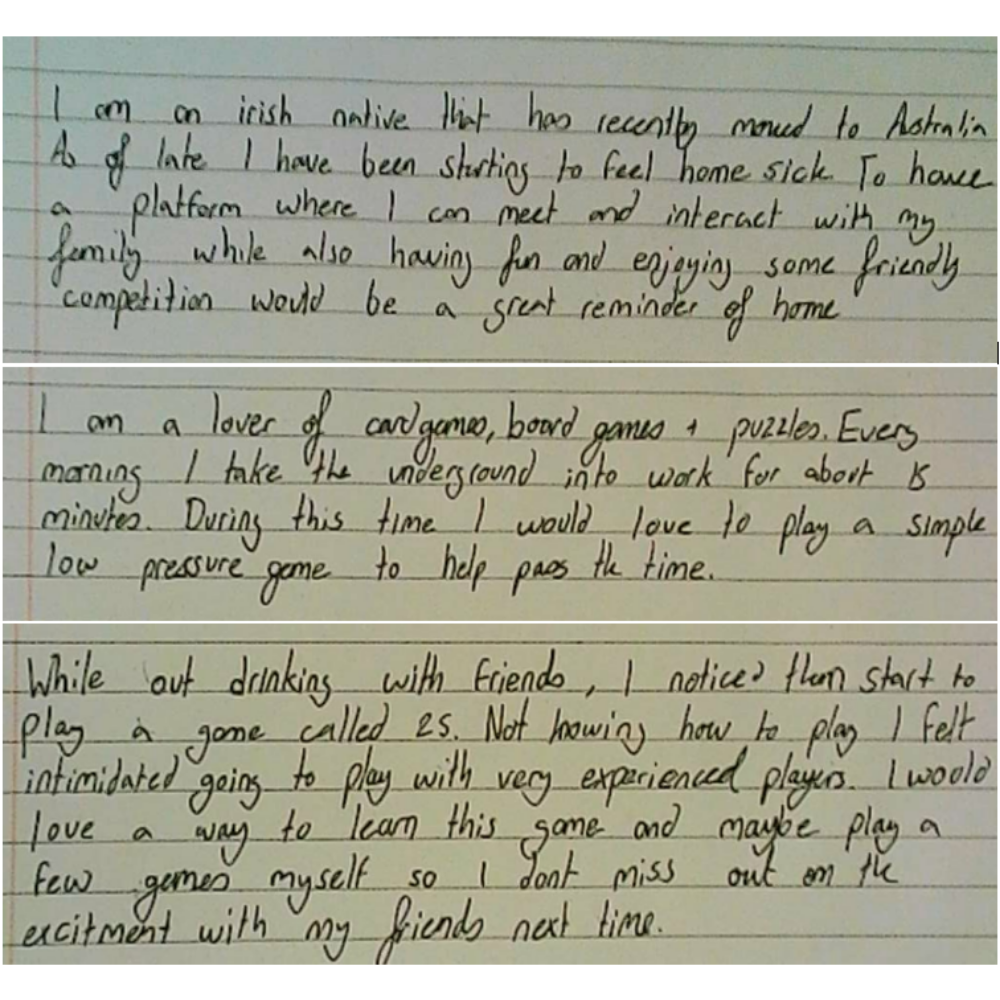 I am an irish native that has recently moved to Australia
As of late I have been starting to feel home sick. To have
a platform where I can meet and interact with my
family while also having fun and enjoying some friendly
competition would be a great reminder of home
I am a lover of cardgames, board games + puzzles. Every
morning I take the underground into work for about 15
minutes. During this time I would love to play a simple
low pressure game to help pass the time.
While out drinking with friends, I noticed them start to
play a game called 25. Not knowing how to play I felt
intimidated going to play with very experienced players. I would
love a way to learn this game and maybe play a
few games myself so I dont miss out on the
excitment with my friends next time.